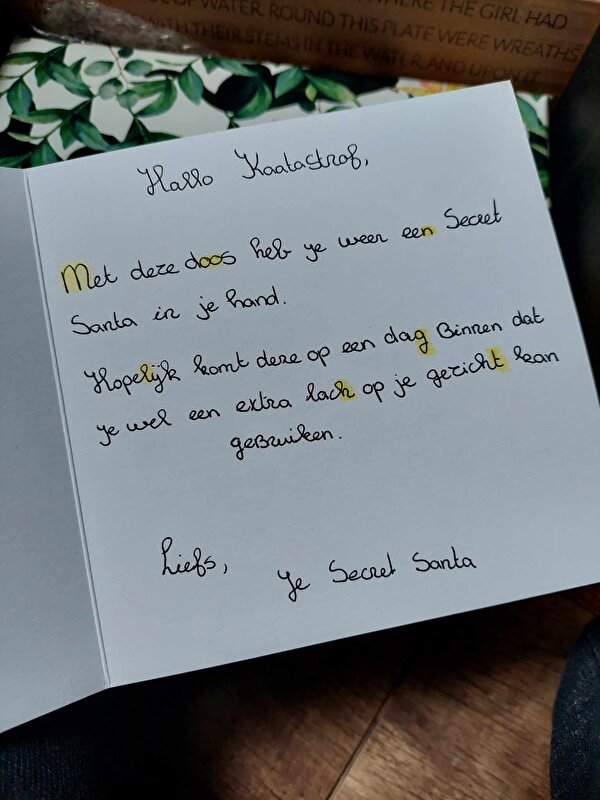 HERE THE GIRL HAD
OF WATER. ROUND THIS PLATE WERE WREATHS
WITH THEIR STEMS IN THE WATER, AND UPON IT
Hallo Kaatastrof,
Met deze doos heb je weer een Secret
Santa in je hand.
Hopelijk komt deze op een dag Binnen dat
je wel een extra lach op je gezicht kan
geBruiken.
Liefs,
Je Secret Santa